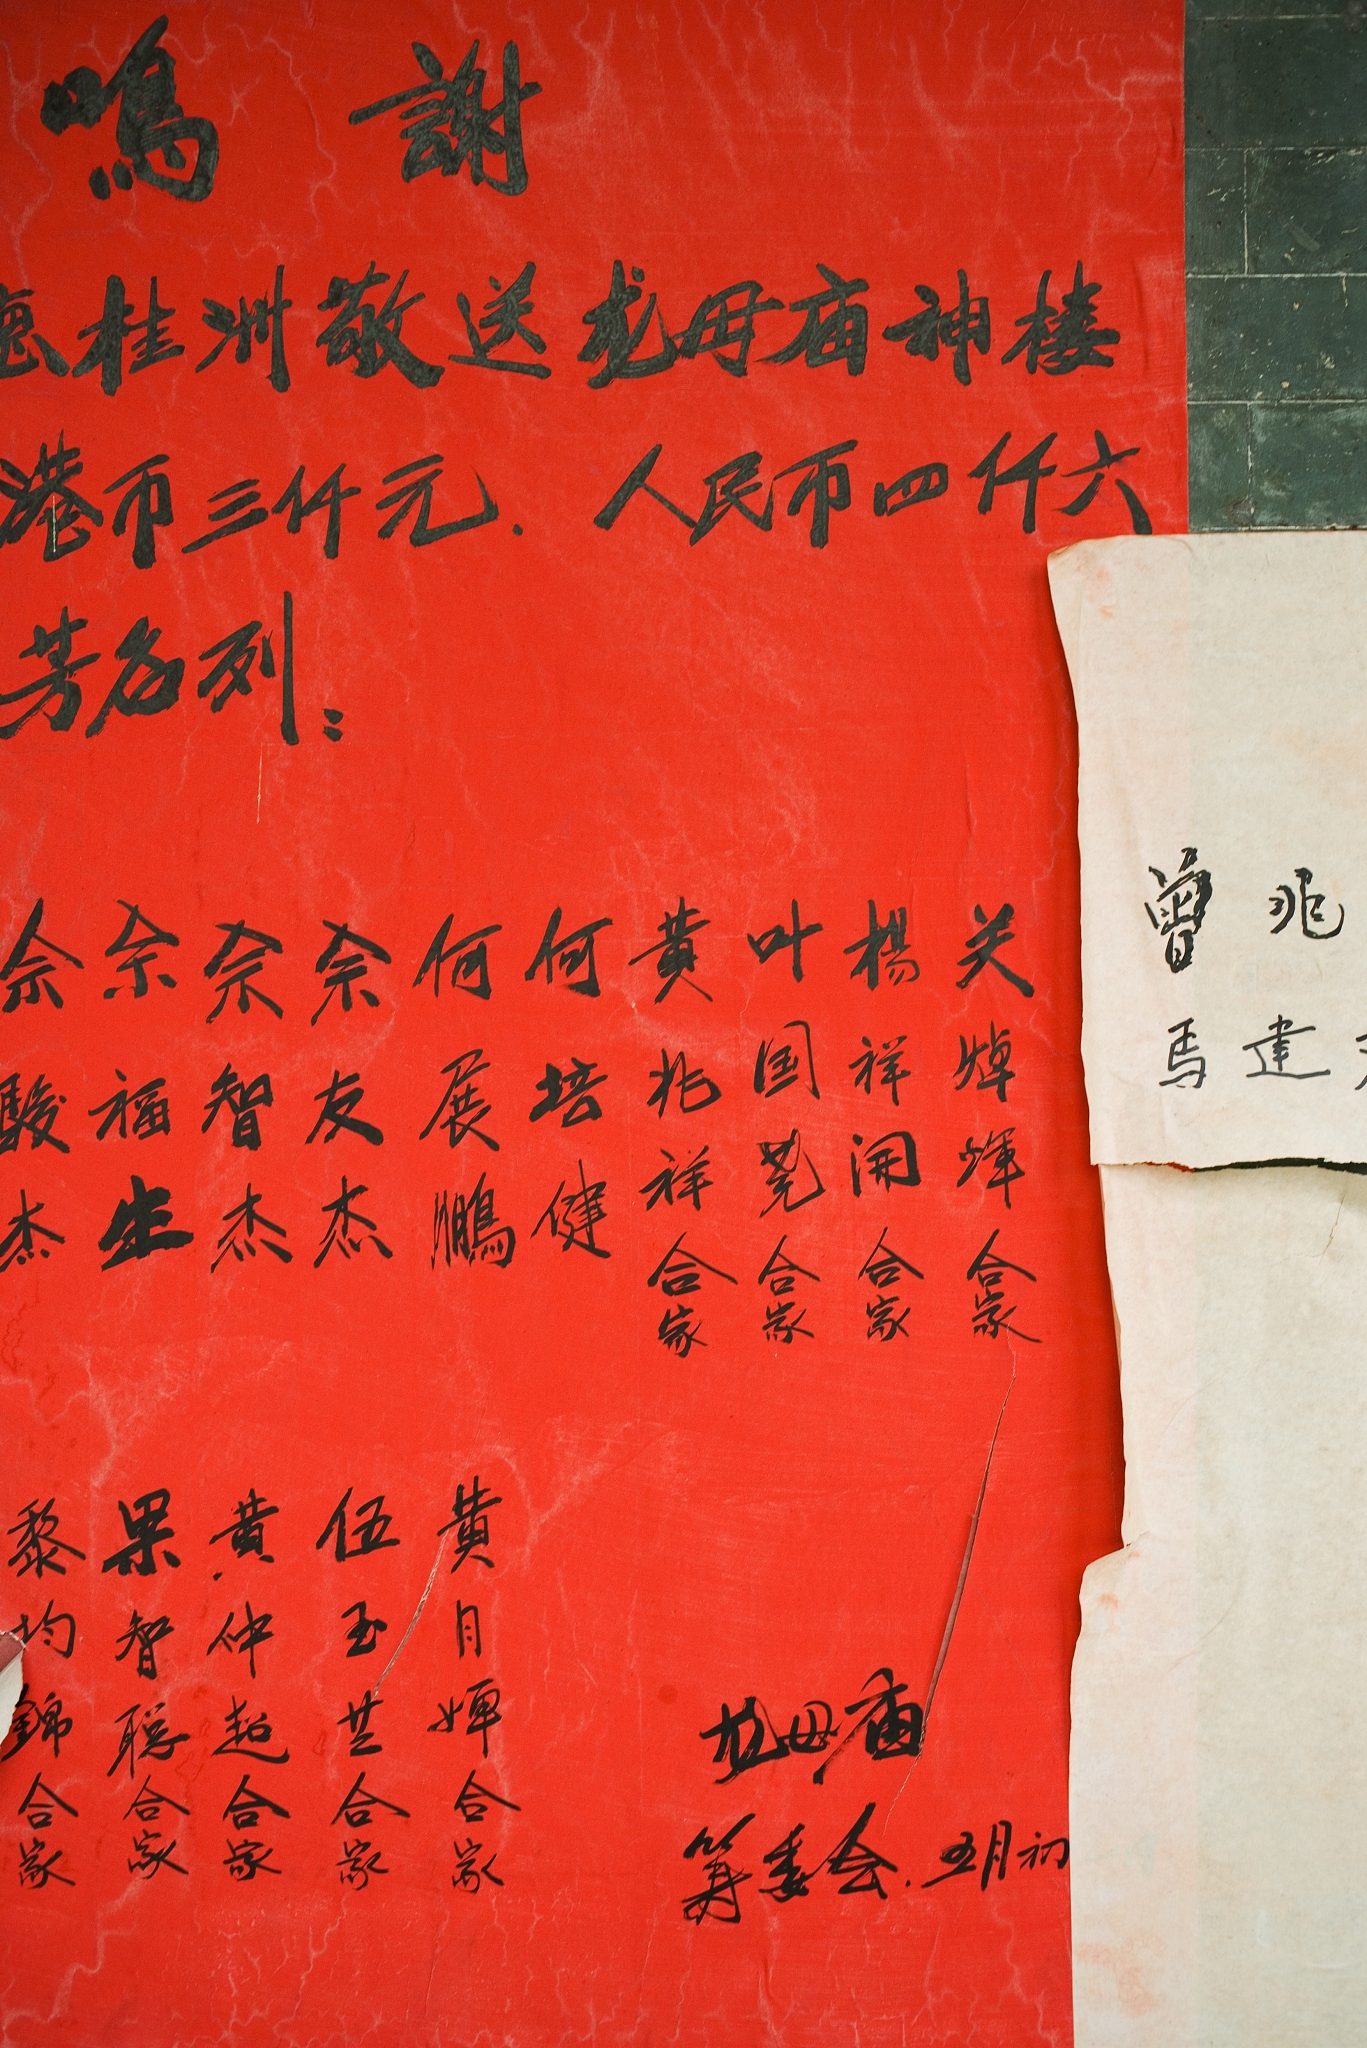 鳴謝
德桂洲敬送龙母庙神楼
港币三仟元. 人民币四仟六
芳名列:
佘駿杰
佘福生
佘智杰
佘友杰
何展鵬
何培健
黄兆祥合家
叶国尧合家
楊祥開合家
关焯輝合家
黎均錦合家
果智聪合家
黄仲超合家
伍玉芸合家
黄月嬋合家
龙母庙
筹委会. 五月初
曾兆
馬建